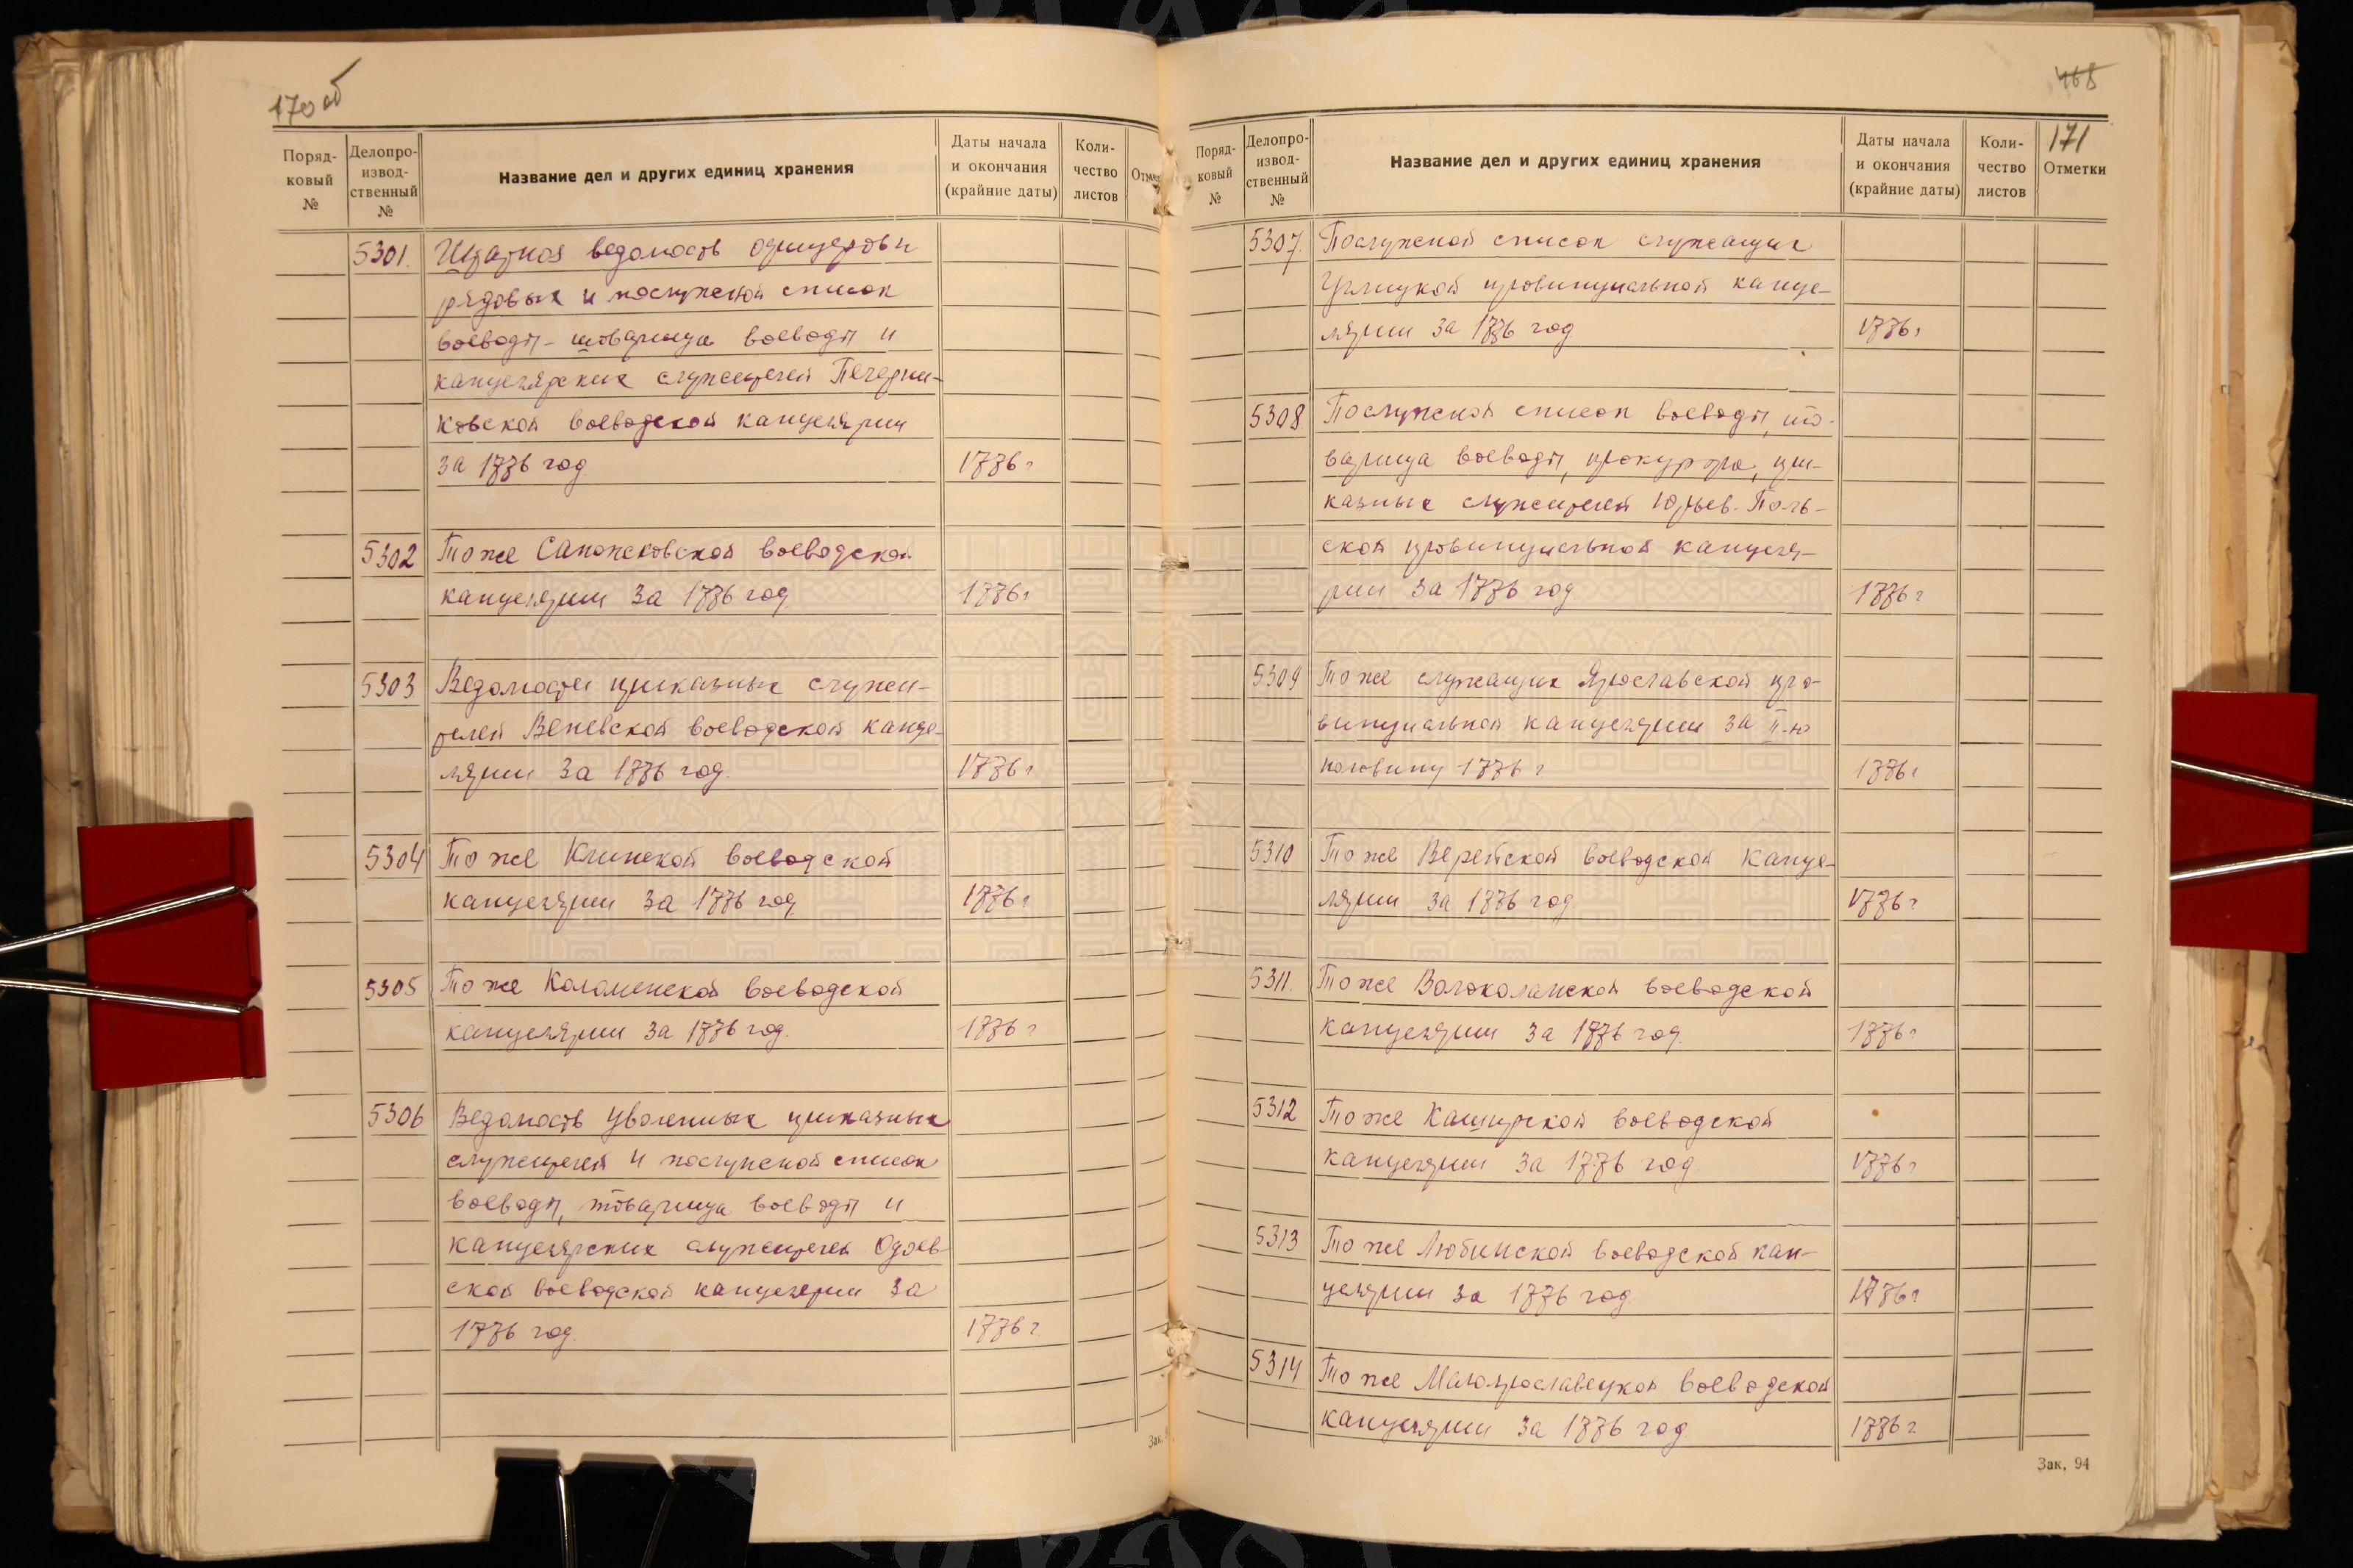 170 об
Поряд-
ковый
№
Делопро-
извод-
ственный
№
Название дел и других единиц хранения
Даты начала
и окончания
(крайние даты)
Коли-
чество
листов
5301. Штатная ведомость офицеров и
рядовых и послужной список
воеводы - товарища воеводы и
канцелярских служителей Печерни-
ковской воеводской канцелярии
за 1776 год 1776 г
5302 То же Сапожковской воеводской
канцелярии за 1776 год 1776 г
5303 Ведомости приказных служи-
телей Веневской воеводской канце-
лярии за 1776 год. 1776 г
5304 То же Клинской воеводской
канцелярии за 1776 год 1776 г
5305 То же Коломенской воеводской
канцелярии за 1776 год. 1776 г
5306 Ведомость уволенных приказных
служителей и послужной список
воеводы, товарища воеводы и
канцелярских служителей Одоев-
ской воеводской канцелярии за
1776 год. 1776 г.
Зак.
468
171
Поряд-
ковый
№
Делопро-
извод-
ственный
№
Название дел и других единиц хранения
Даты начала
и окончания
(крайние даты)
Коли-
чество
листов
Отметки
5307. Послужной список служащих
Углицкой провинциальной канце-
лярии за 1776 год 1776 г
5308 Послужной список воеводы, то-
варища воеводы, прокурора, при-
казных служителей Юрьев. Поль-
ской провинциальной канцеля-
рии за 1776 год 1776 г
5309 То же служащих Ярославской про-
винциальной канцелярии за II-ю
половину 1776 г 1776 г
5310 То же Верейской воеводской канце-
лярии за 1776 год 1776 г
5311. То же Волоколамской воеводской
канцелярии за 1776 год. 1776 г
5312 То же Каширской воеводской
канцелярии за 1776 год. 1776 г
5313 То же Любимской воеводской кан-
целярии за 1776 год 1776 г
5314 То же Малоярославецкой воеводской
канцелярии за 1776 год 1776 г
Зак. 94